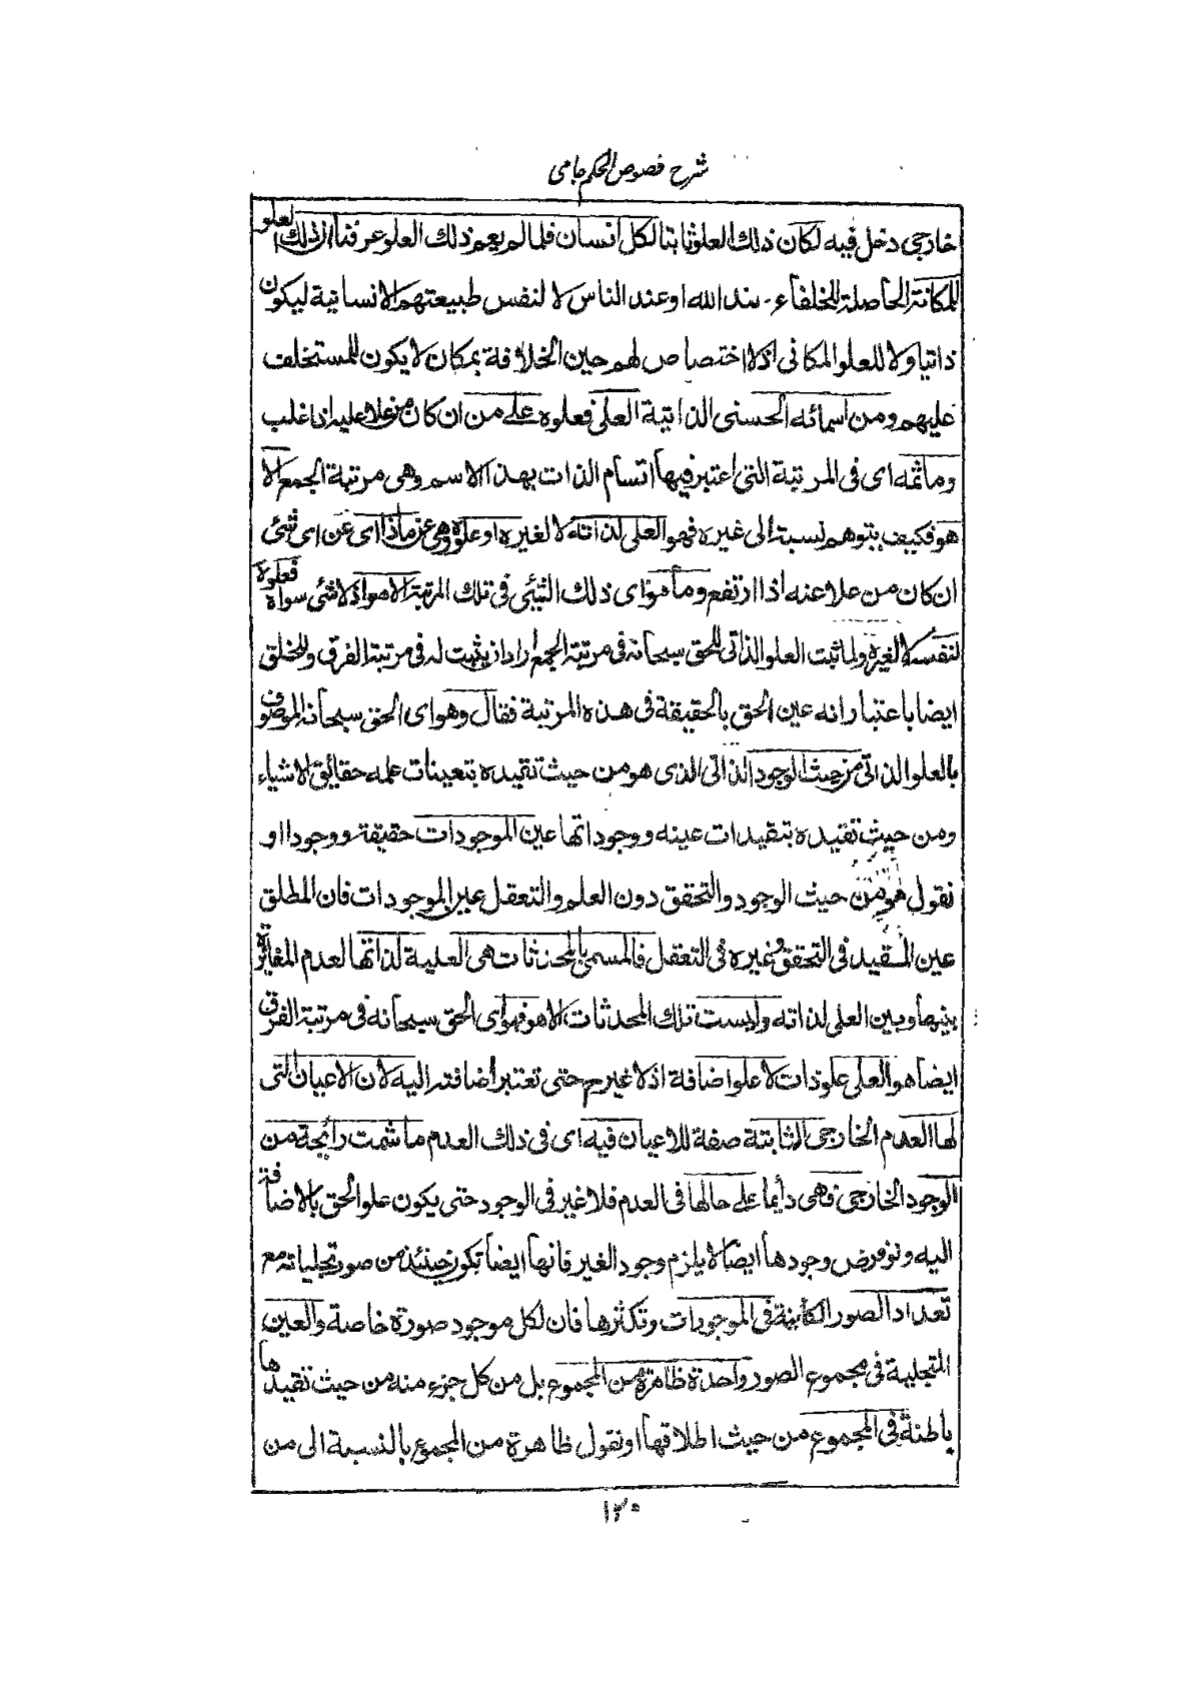 شرح فصوص الحكم جامى
خارجى دخل فيه لكان ذلك العلو ثابتا لكل انسان فلما لم يعم ذلك العلو عرفنا ان ذلك العلو
للمكانة الحاصلة للخلفاء عند الله او عند الناس لا لنفس طبيعتهم الانسانية ليكون
ذاتيا ولا للعلو المكانى اذ لا اختصاص لهم حين الخلافة بمكان لا يكون للمستخلف
عليهم ومن اسمائه الحسنى الذاتية العلى فعلوه على من ان كان من علا عليه اذا غلب
وما ثمه اى فى المرتبة التى اعتبر فيها اتسام الذات بهذا الاسم وهى مرتبة الجمع الا
هو فكيف يتوهم نسبته الى غيره فهو العلى لذاته لا لغيره او علوه وهى عن ماذا اى عن اى شئ
ان كان من علا عنه اذا ارتفع وما هو اى ذلك الشئ فى تلك المرتبة الا هو اذ لا شئ سواه فعلوه
لنفسه لا لغيره ولما ثبت العلو الذاتى للحق سبحانه فى مرتبة الجمع اراد ان يثبت له فى مرتبة الفرق وللخلق
ايضا باعتبار انه عين الحق بالحقيقة فى هذه المرتبة فقال وهو اى الحق سبحانه الموصوف
بالعلو الذاتى من حيث الوجود الذاتى الذى هو من حيث تقيده بتعينات علمه حقائق الاشياء
ومن حيث تقيده بتقيدات عينه ووجوداتها عين الموجودات حقيقة ووجودا او
نقول هو من حيث الوجود والتحقق دون العلم والتعقل عين الموجودات فان المطلق
عين المقيد فى التحقق وغيره فى التعقل فالمسمى بالمحدثات هى العلية لذاتها لعدم المغائرة
بينها وبين العلى لذاته وليست تلك المحدثات الا هو فهو اى الحق سبحانه فى مرتبة الفرق
ايضا هو العلى علو ذات لا علو اضافة اذ لا غير حتى تعتبر اضافته اليه لان الاعيان التى
لها العدم الخارجى الثابتة صفة للاعيان فيه اى فى ذلك العدم ما شمت رائحة من
الوجود الخارجى فهى دائما على حالها فى العدم فلا غير فى الوجود حتى يكون علو الحق بالاضافة
اليه ونو فرض وجودها ايضا لا يلزم وجود الغير فانها ايضا تكون حينئذ من صور تجلياته مع
تعداد الصور الكائنة فى الموجودات وتكثرها فان لكل موجود صورة خاصة والعين
المتجلية فى مجموع الصور واحدة ظاهرة من المجموع بل من كل جزء منه من حيث تقيدها
باطنة فى المجموع من حيث اطلاقها او نقول ظاهرة من المجموع بالنسبة الى من
١٢٠